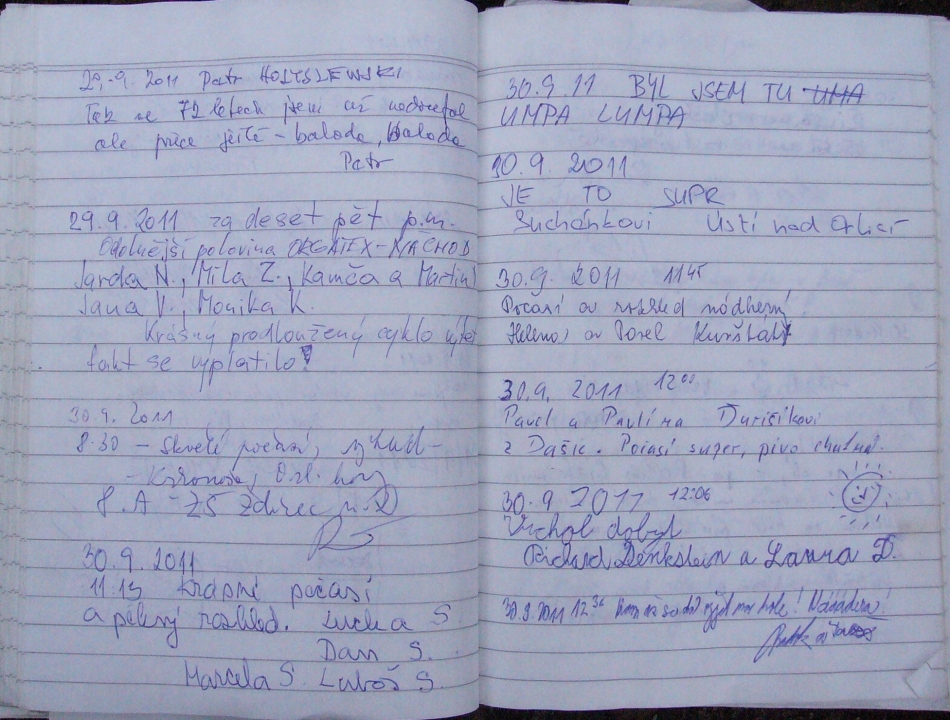 29.9. 2011 Petr HOLYSLEWSKI
Tak ve 72 letech jsem už nedoufal
ale přece ještě - baloda, baloda
Petr
29.9.2011 za deset pět p.m.
Odolnější polovina ORGATEX-NÁCHOD
Jarda N., Míla Z., Kamča a Martin
Jana V., Monika K.
Krásný prodloužený cyklo výlet
fakt se vyplatilo!
30.9.2011
8.30 - Skvělé počasí, výhled -
- Krkonoše, Orl. hory
8.A - ZŠ Ždírec n.D
30.9.2011
11.15 krásné počasí
a pěkný rozhled. Lucka S.
Dan S.
Marcela S. Luboš S.
30.9.11 BYL JSEM TU UMA
UMPA LUMPA
30.9. 2011
JE TO SUPR
Suchánkovi Ústí nad Orlicí
30.9. 2011 11 45
Počasí a rozhled nádherný
Helena a Pavel
30.9. 2011 12 00
Pavel a Pavlína Ďurišíkovi
z Dašic. Počasí super, pivo chutná.
30.9 2011 12:06
Vrchol dobyl
Richard Denkstein a Laura D.
30.9.2011 12 36 kole! Nádhera!